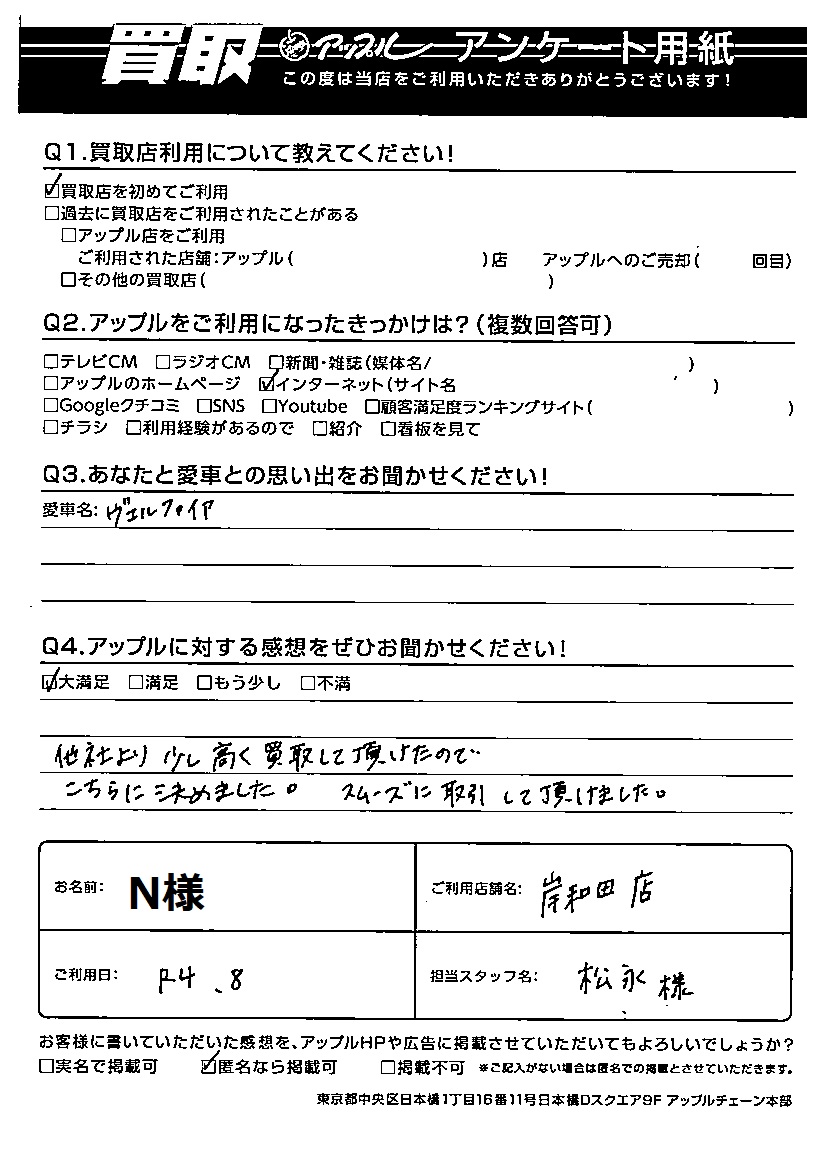 買取 アップル アンケート用紙
この度は当店をご利用いただきありがとうございます!
Q1.買取店利用について教えてください!
☑買取店を初めてご利用
□過去に買取店をご利用されたことがある
□アップル店をご利用
ご利用された店舗:アップル( )店 アップルへのご売却( 回目)
□その他の買取店( )
Q2.アップルをご利用になったきっかけは?(複数回答可)
□テレビCM □ラジオCM □新聞・雑誌(媒体名/ )
□アップルのホームページ ☑インターネット(サイト名 )
□Googleクチコミ □SNS □Youtube □顧客満足度ランキングサイト( )
□チラシ □利用経験があるので □紹介 □看板を見て
Q3.あなたと愛車との思い出をお聞かせください!
愛車名: ヴェルファイア
Q4.アップルに対する感想をぜひお聞かせください!
☑大満足 □満足 □もう少し □不満
他社より少し高く買取して頂けたので
こちらに決めました。 スムーズに取引して頂けました。
お名前: N様 ご利用店舗名: 岸和田店
ご利用日: R4.8 担当スタッフ名: 松永様
お客様に書いていただいた感想を、アップルHPや広告に掲載させていただいてもよろしいでしょうか?
□実名で掲載可 ☑匿名なら掲載可 □掲載不可 ※ご記入がない場合は匿名での掲載とさせていただきます。
東京都中央区日本橋1丁目16番11号日本橋Dスクエア9F アップルチェーン本部